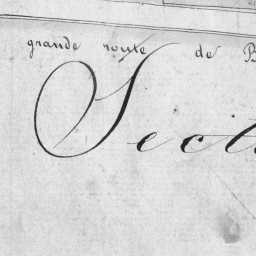 grande route de B
Sect